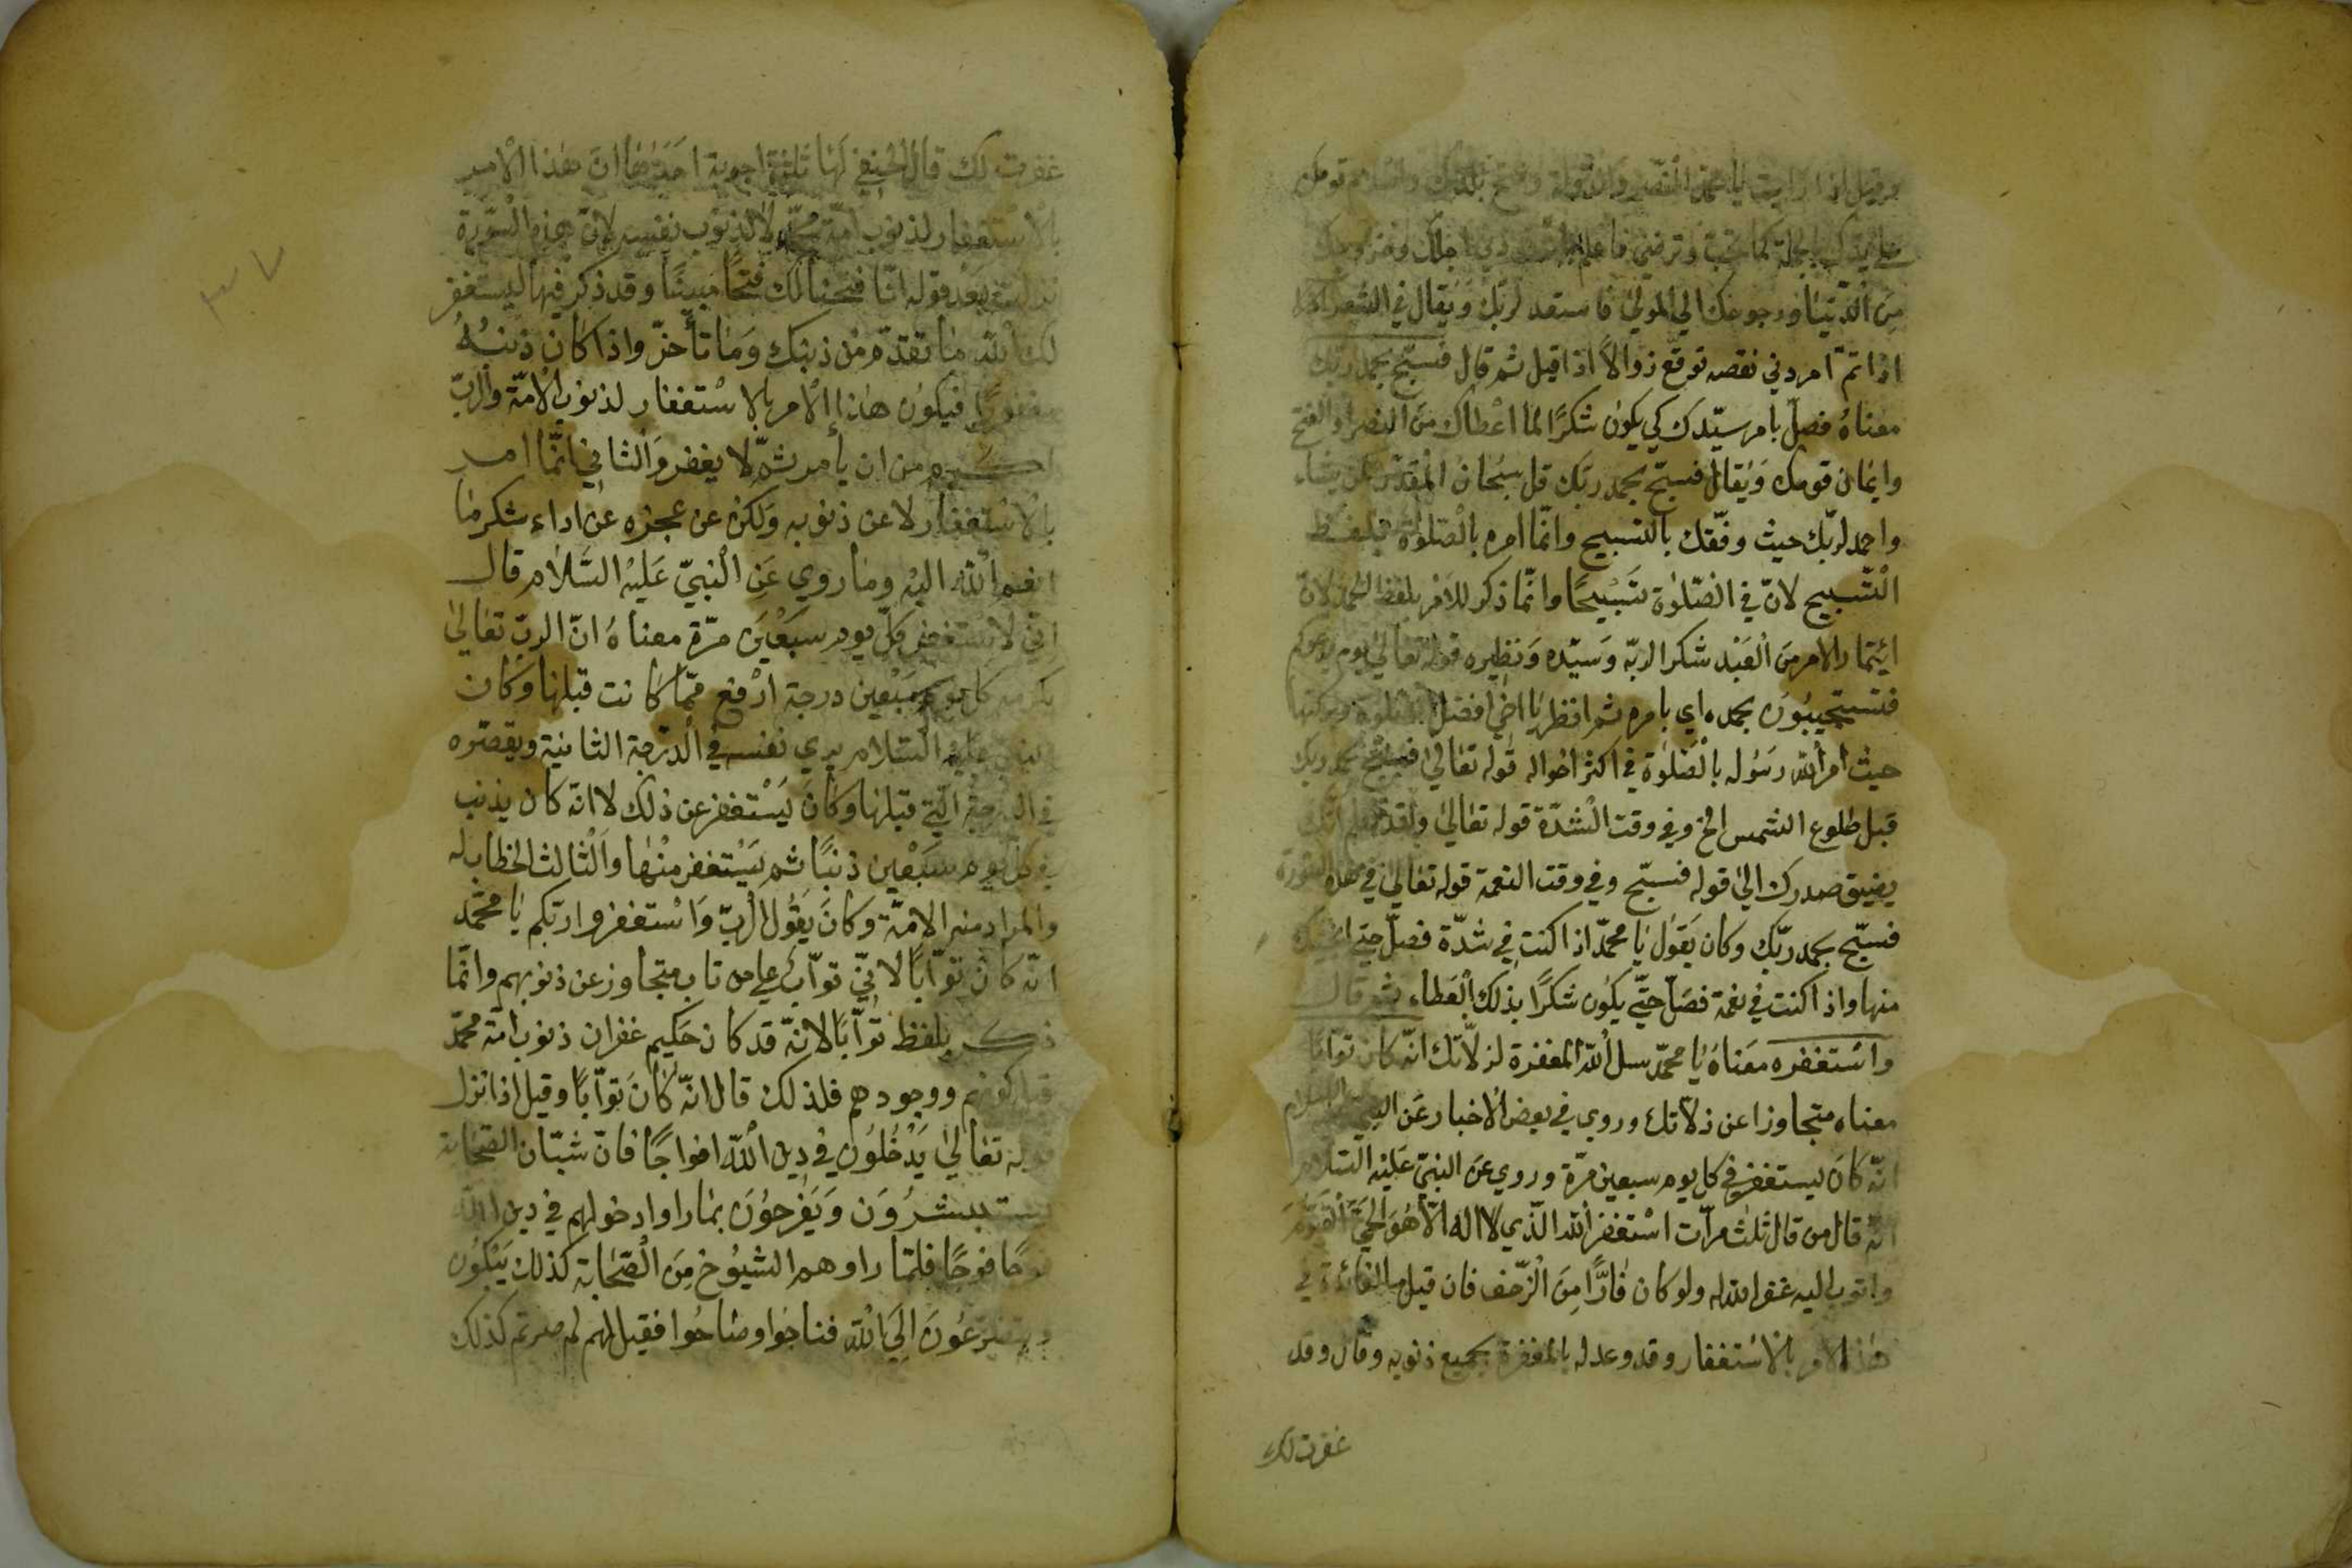 وقيل اذا رايت يا محمد النصر والدولة وفتح بلدك واسلام قومك
على يديك بالجملة كما تحب وترضى فاعلم
من الدّنيا ورجوعك الي المولى فاستعد لربّك ويقال في الشعر
اذا تمّ امر دني نقصه توقع زوالاً اذا قيل ثم قال فسبّح بحمد ربّك
معناهُ فصلّ بامر سيّدك كي يكون شكرًا لما اعْطاك من النصر والفتح
وايمان قومك وَيقال فسبّح بحمد ربّك قل سبْحانُ المقدّر لمن يشاء
واحمد لربّك حيث وفّقك بالتسبيح وانّما امره بالصّلوة بلفظ
التّسبيح لانّ في الصّلوة تَسْبيحًا وانّما ذكر للامْر بلفظ الحمد لانّ
ايْتمار الامر منَ الْعَبْد شكر لربّه وَسيّده وَنظيره قوله تعالى يوم يدعوكم
فتستجيبُونَ بحمده اي بامره ثم انظر يا اخي افضل الصّلوة
حيث امر الله رسُوله بالصّلوة في اكثر احْواله قوله تعالى فسبّح بحمد ربك
قبل طلوع الشمس الخ وفي وقت الْشدّة قوله تعالى ولقد نعلم انّك
يضيق صدرك الى قوله فسبّح وفي وقت النعمة قوله تعالى في هذه السّورة
فسبّح بحمد ربّك وكان يَقول يا محمّد اذا كنت في شدّة فصلّ حتى انجيك
منها واذا كنت في نعمة فصَلّ حتّي يكون شكرًا بذلك الْعَطاء ثم قال
واسْتغفره معَناهُ يا محمّد سل الله المغفرة لزلاّتك انّه كان توّابًا
معناه متجاوزا عن ذلاّتك وروي في بعض الاخبار عَن النبي عليه السلام
انّه كانَ يستغفر في كل يوم سبعين مرّة وروي عن النبيّ عَليْه السّلام
انّه قال من قال ثلث مرآت اسْتغفر الله الّذي لا اله الاّ هُوَ الحيّ القيّومَ
واتوب اليه غفر الله له ولو كان فارًّا مِنَ الْزّحف فان قيل ما الفائدة في
هذا الامر بالاسْتغفار وقد وعد له بالمغفرة بجميع ذنوبه وقال وقد
غفرت لك
غفرت لك قال الحنفي لَها ثلثة اجوبة احَدهَا انّ هٰذا الامر
بالاسْتغفار لذنوب امّة محمّد لا لذنوب نفسه لانّ هذه الْسّورَة
نزلت بَعْد قوله انّا فتحنا لك فتحًا مُبينًا وقد ذكر فيها ليسْتغفر
لك الله ما تقدّم مْن ذنبك وَمَا تأخّر واذا كان ذنبُهُ
مغفورًا فيكوُن هذا الامر بالاسْتغفار لذنوب الامّة والرّبّ
اكرم من ان يأمر ثمّ لا يغفر وَالثاني انّما امر
بالاسْتغفار لا عن ذنوبه وَلكن عن عجزه عن اداء شكر ما
انعم الله اليْه وما روي عَنِ الْنبيّ عَليْهُ السّلام قال
انّي لاسْتغفر كلّ يوم سَبَعْينَ مرّة معناهُ انّ الربّ تعالى
يكرمه كل يوم سَبعْين درجة ارْفع ممّا كانت قبلها وكان
النبيّ عليه السّلام يري نفسه في الْدّرجة الثانية ويقصّره
في الدرجة الّتي قبلها وكانَ يَسْتغفر عن ذلك لا انّه كان يذنب
في كلّ يوم سَبَعْين ذنبًا ثم يَسْتغفر منْها وَالْثالث الخطاب له
والمراد منه الامّة وكانَ يقُول الرّبّ وَاسْتغفروا ربّكم يا محمّد
انّه كان توّابًا لانّي توّاب علي من تاب متجاوز عن ذنوبهم وانّما
ذكر بلفظ توّابًا لانّه قد كان حَكيم غفران ذنوب امّة محمّد
قبل كونهم ووجودهم فلذلك قال انّه كان توّابًا وقيل اذا نزل
قوله تعالى يَدْخُلُون في دين الله افواجًا فانّ شبّان الصّحَابة
يستبشرُوَن وَيَفرحوُنَ بما راوا دخولهم في دين الله
فوجًا فوجًا فلمّا راوهم الشيُوخ مِنَ الْصّحَابة كذلك يَبْكوُن
ويتضرّعُونَ اليَ الله فناحُوا وصَاحُوا فقيل لهم لم صرتم كذلك